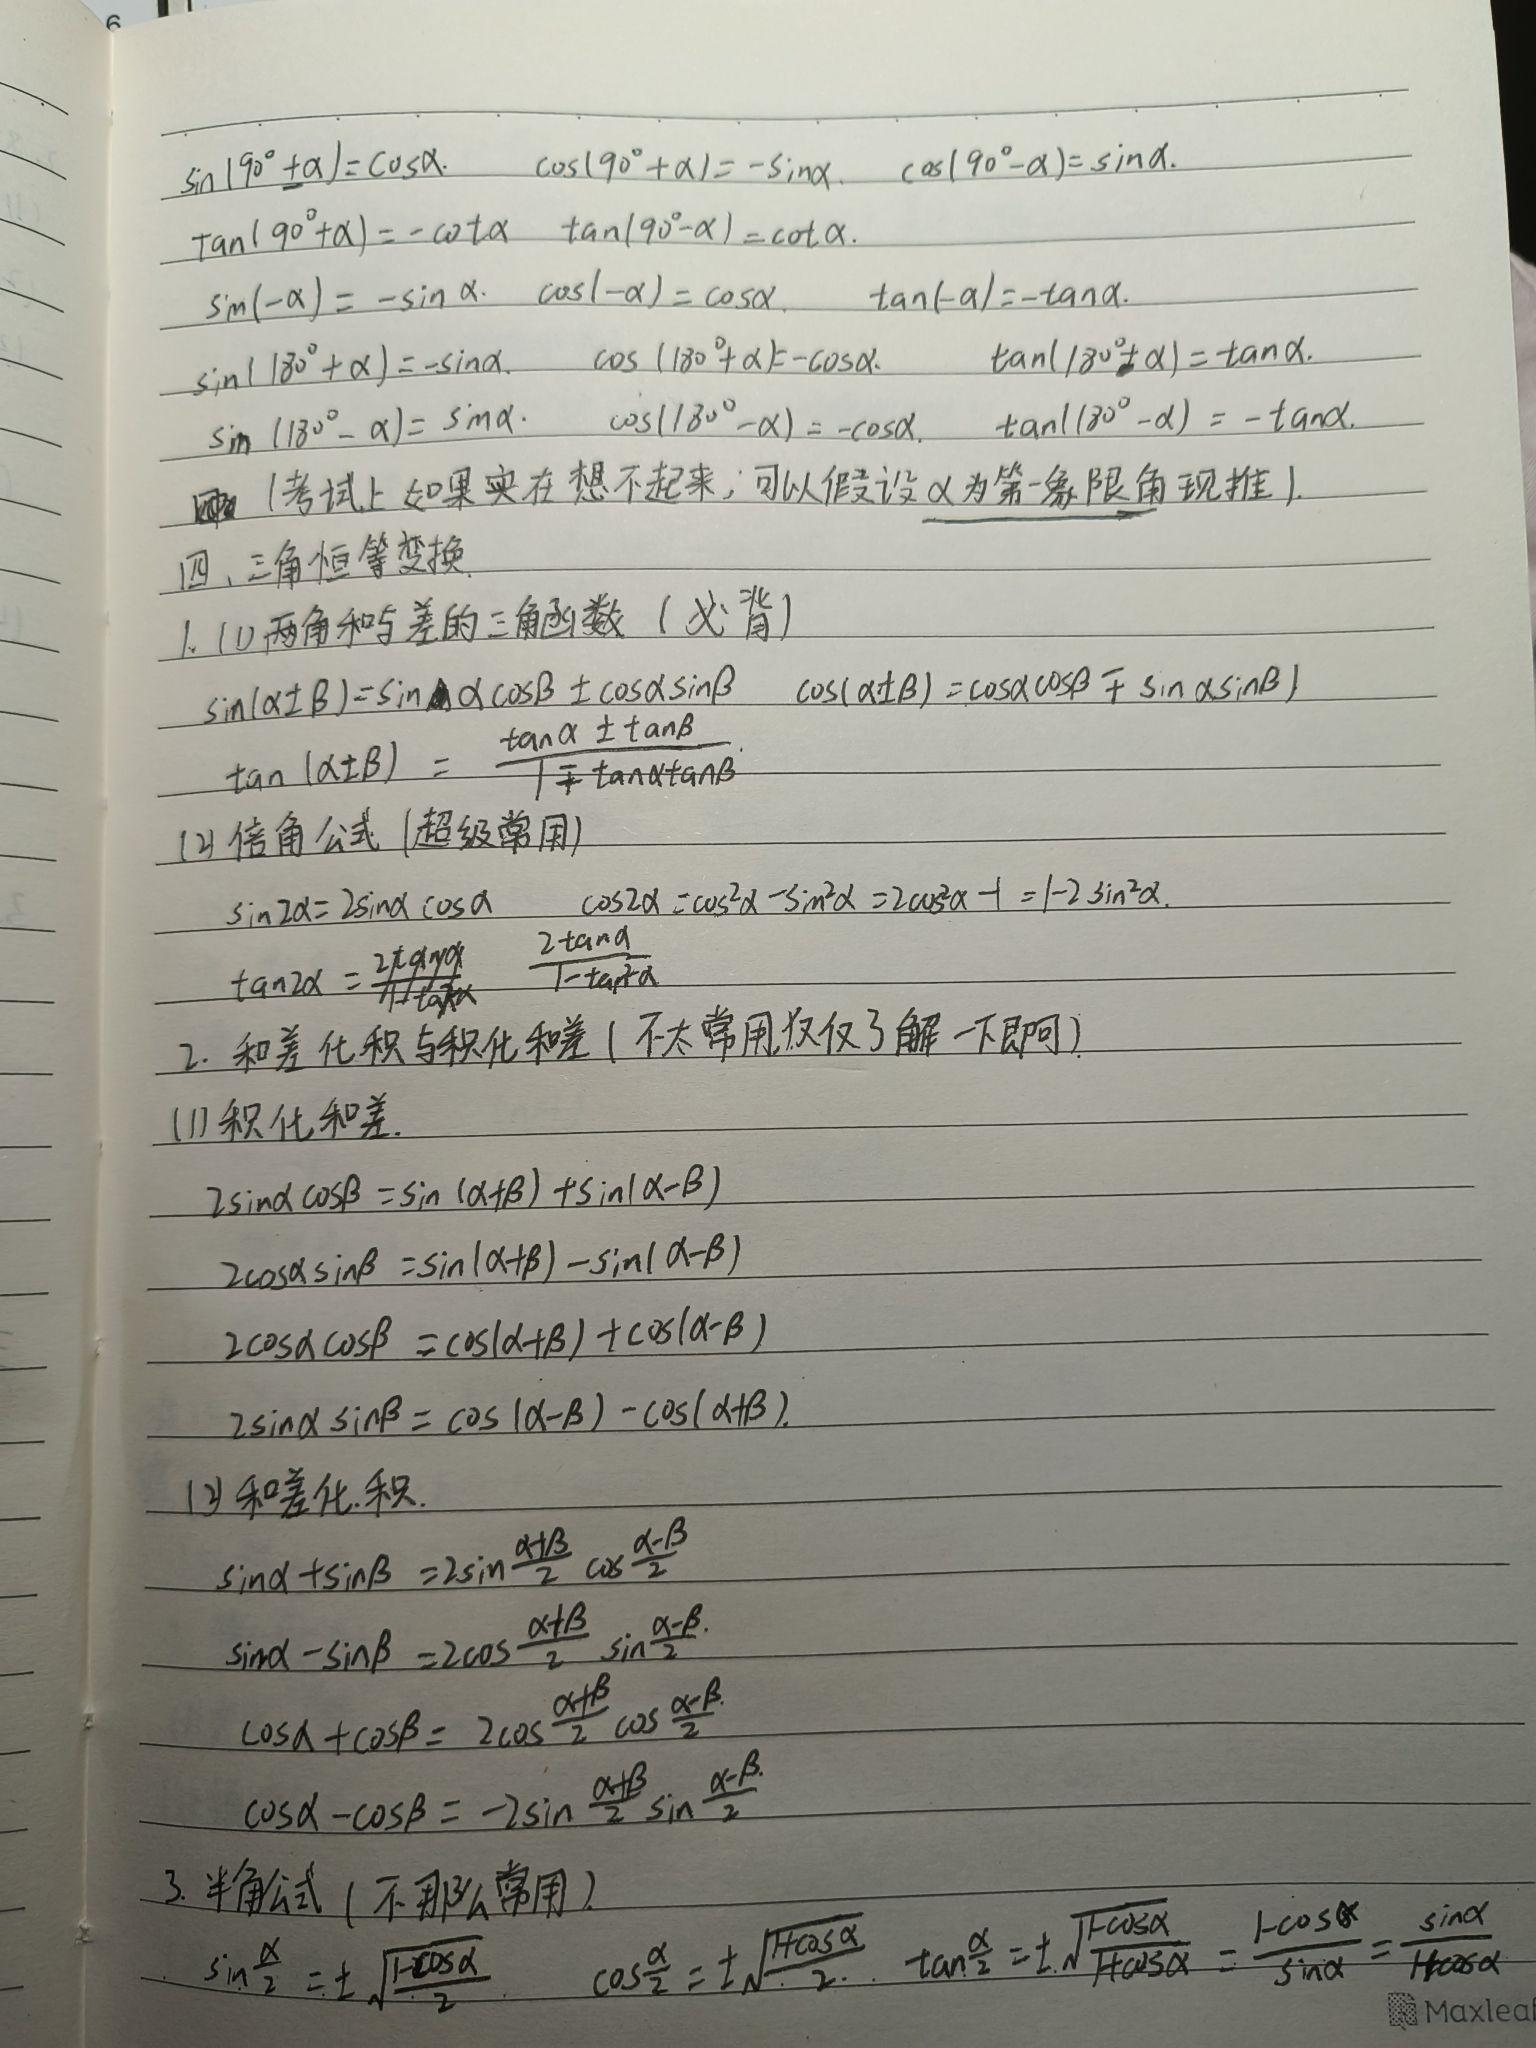 6
sin(90°±α)=cosα. cos(90°+α)=-sinα. cos(90°-α)=sinα.
tan(90°+α)=-cotα tan(90°-α)=cotα.
sin(-α)=-sinα. cos(-α)=cosα. tan(-α)=-tanα.
sin(180°+α)=-sinα. cos(180°+α)=-cosα. tan(180°+α)=tanα.
sin(180°-α)=sinα. cos(180°-α)=-cosα. tan(180°-α)=-tanα.
(考试上如果实在想不起来,可以假设α为第一象限角现推).
四、三角恒等变换.
1.(1)两角和与差的三角函数(必背)
sin(α±β)=sinαcosβ±cosαsinβ cos(α±β)=cosαcosβ∓sinαsinβ)
tan(α±β)=\frac{tanα±tanβ}{1∓tanαtanβ}.
(2)倍角公式(超级常用)
sin2α=2sinαcosα cos2α=cos²α-sin²α=2cos²α-1=1-2sin²α.
tan2α=\frac{2tanα}{1-tan²α}
2.和差化积与积化和差(不太常用,仅仅了解一下即可)
(1)积化和差.
2sinαcosβ=sin(α+β)+sin(α-β)
2cosαsinβ=sin(α+β)-sin(α-β)
2cosαcosβ=cos(α+β)+cos(α-β)
2sinαsinβ=cos(α-β)-cos(α+β).
(2)和差化积.
sinα+sinβ=2sin\frac{α+β}{2}cos\frac{α-β}{2}
sinα-sinβ=2cos\frac{α+β}{2}sin\frac{α-β}{2}.
cosα+cosβ=2cos\frac{α+β}{2}cos\frac{α-β}{2}.
cosα-cosβ=-2sin\frac{α+β}{2}sin\frac{α-β}{2}.
3.半角公式(不那么常用).
sin\frac{α}{2}=±\sqrt{\frac{1-cosα}{2}} cos\frac{α}{2}=±\sqrt{\frac{1+cosα}{2}} tan\frac{α}{2}=±\sqrt{\frac{1-cosα}{1+cosα}}=\frac{1-cosα}{sinα}=\frac{sinα}{1+cosα}
Maxleaf